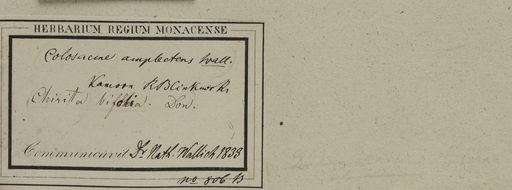 HERBARIUM REGIUM MONACENSE
amplectens Wall.
Kamoon R Blinkworth
Chirita bifolia. Don.
Communicavit Dr. Nath. Wallich 1833
no 806 B